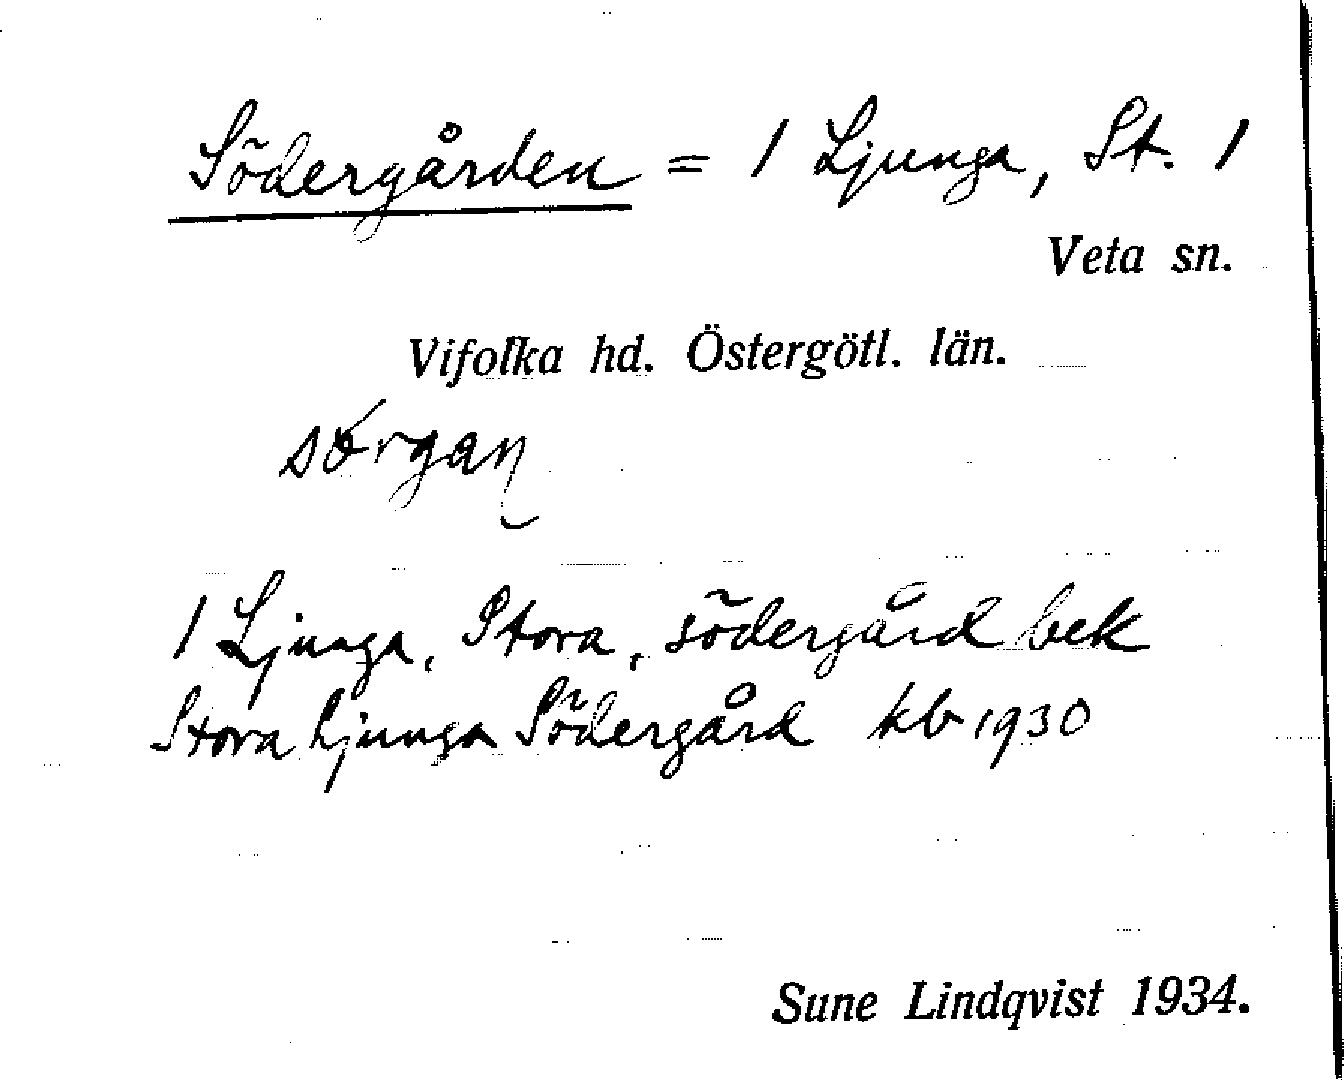 Södergården = 1 Ljunga, St. 1
Veta sn.
Vifolka hd. Östergötl. län.
1 Ljunga, Stora, södergård bek
Stora Ljunga Södergård kb 1930
Sune Lindqvist 1934.